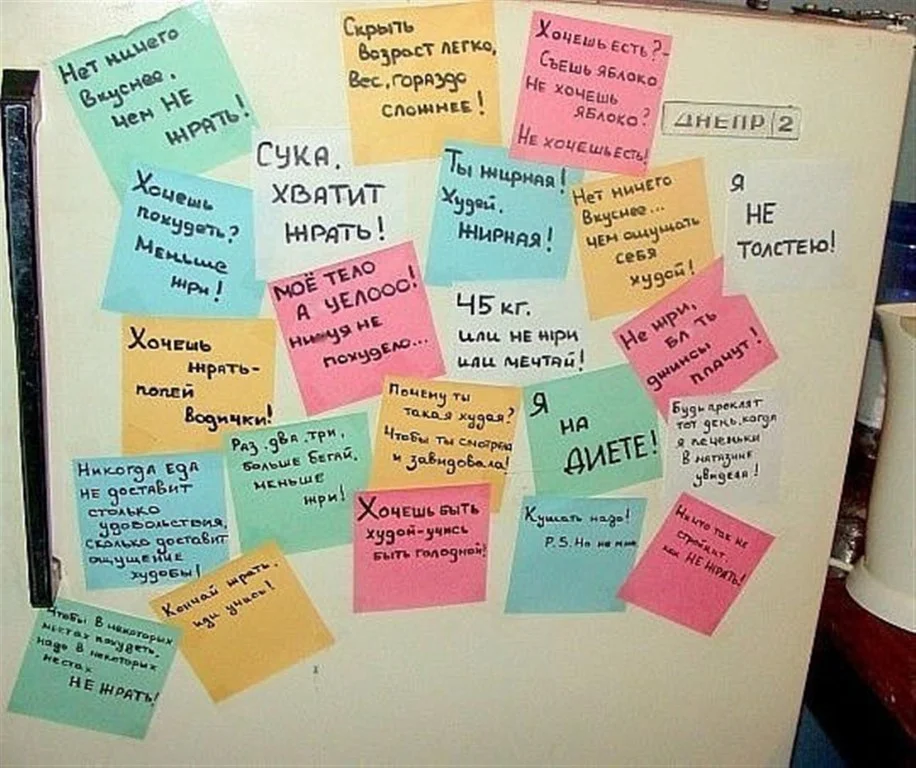 Нет ничего
вкуснее,
чем НЕ
ЖРАТЬ!
Скрыть
возраст легко,
Вес, гораздо
сложнее!
Хочешь есть?-
Съешь яблоко
Не хочешь
яблоко?
Не хочешь есть!
ДНЕПР 2
Хочешь
похудеть?
Меньше
жри!
СУКА,
ХВАТИТ
ЖРАТЬ!
Ты жирная!
Худей,
ЖИРНАЯ!
Нет ничего
Вкуснее...
чем ощущать
себя
худой!
Я
НЕ
ТОЛСТЕЮ!
МОЁ ТЕЛО
А УЕЛООО!
ни уя не
похудело...
45 кг.
или не жри
или мечтай!
Не жри,
бл ть
джинсы
плачут!
Хочешь
жрать-
попей
водички!
Раз, два, три,
больше бегай,
меньше
жри!
Почему ты
такая худая?
Чтобы ты смотрела
и завидовала!
Я
НА
ДИЕТЕ!
Будь проклят
тот день, когда
я печеньки
в магазине
увидела!
Никогда ЕДА
не доставит
столько
удовольствия,
сколько доставит
ощущение
худобы!
Хочешь быть
худой-учись
быть голодной!
Кушать надо!
P.S. Но не мне
Ничто так не
стройнит
как НЕ ЖРАТЬ!
Кончай жрать,
иди учись!
Чтобы в некоторых
местах похудеть,
надо в некоторых
местах
НЕ ЖРАТЬ!